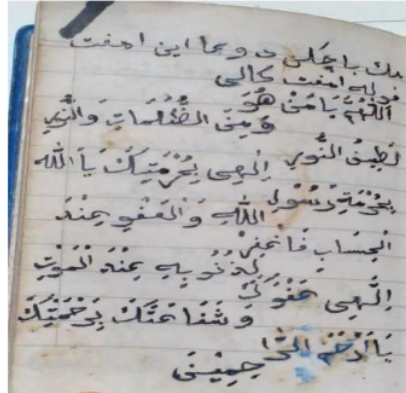 بدك باچلن دوبما اين امفت
فوله امفت كالى
اَللّٰهُمَّ يَا مَنْ هُوَ
وَمِنَ الظُّلُمَاتِ وَالنُّوْرِ
لَطِيْفُ النُّوْرِ اِلٰهِى بِحُرْمَتِكَ يَا اَللّٰه
بِحُرْمَةِ رَسُوْلِ اللهِ وَالْعَفْوِ عِنْدَ
الْحِسَابِ فَاغْفِرْ
لِذُنُوْبِهِ عِنْدَ الْمَوْتِ
اِلٰهِى عَفْوَكَ
وَشَفَاعَتَكَ بِرَحْمَتِكَ
يَا اَرْحَمَ الرَّا
حِمِيْنَ